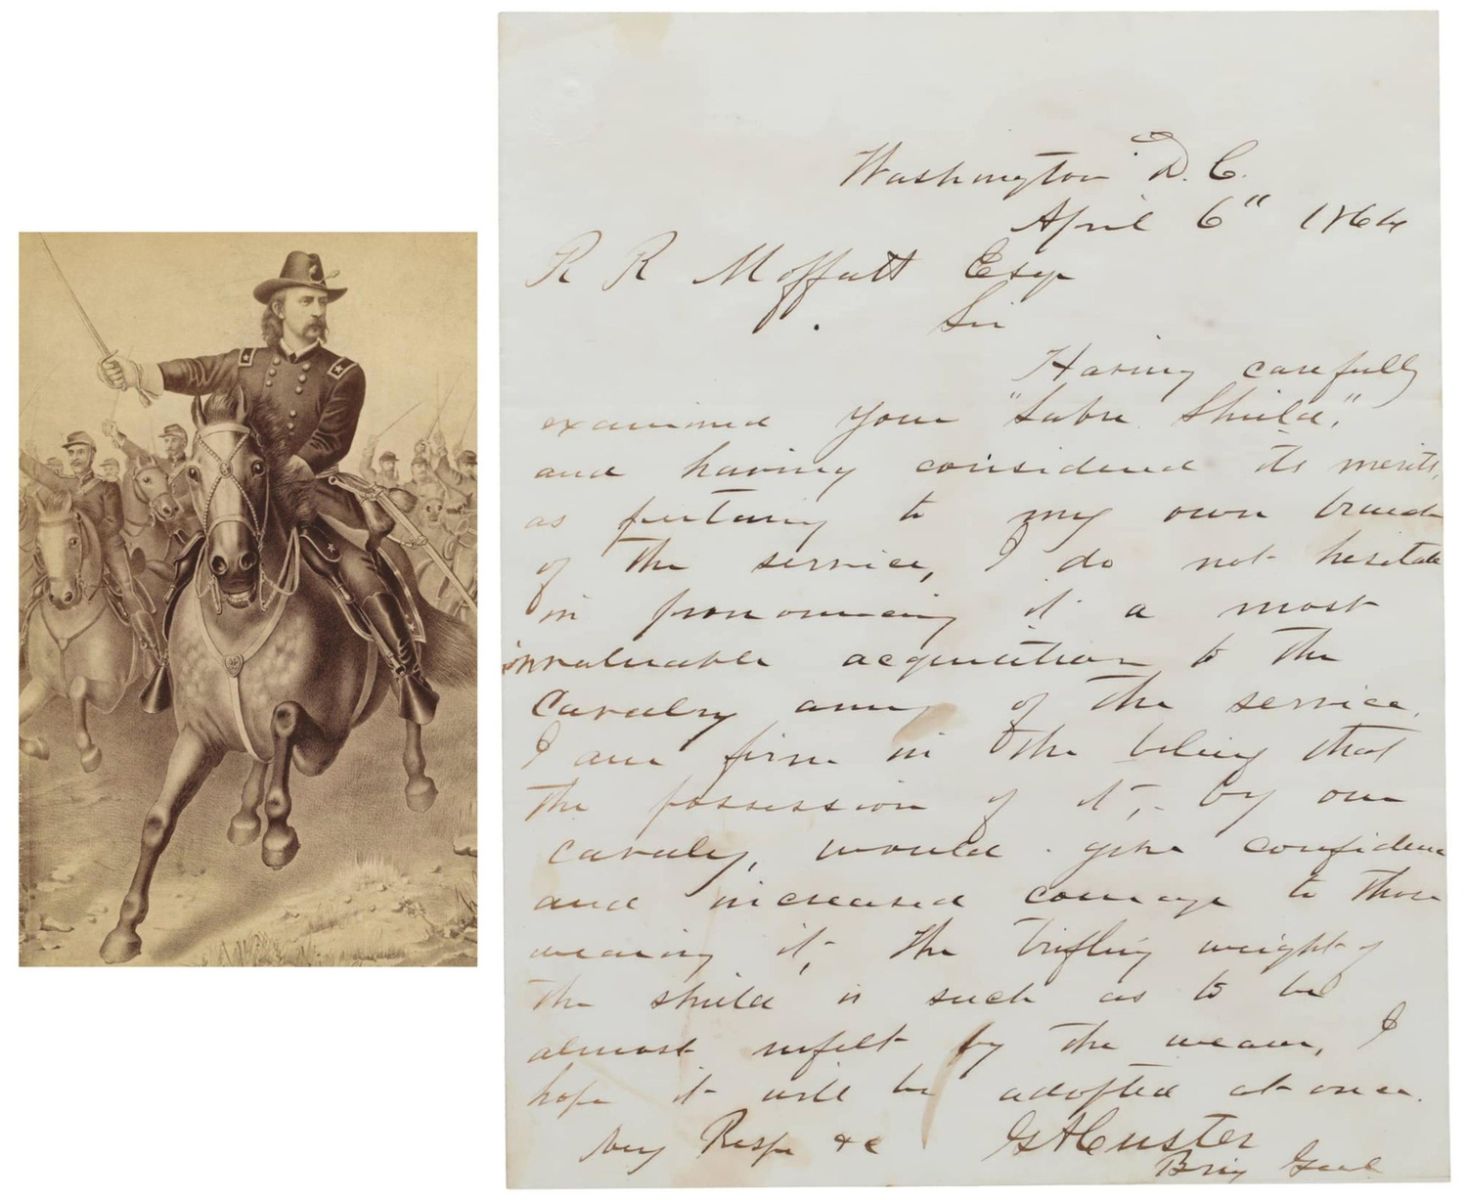 Washington D. C.
April 6" 1864
R R Moffatt Esqr
Sir
Having carefully
examined your "Sabre Shield,"
and having considered its merits,
as pertaing to my own branch
of the service, I do not hesitate
in pronouncing it a most
invaluable acquisition to the
Cavalry army of the service.
I am firm in the belief that
the possession of it, by our
cavalry, would give confidence
and increased courage to those
wearing it, the trifling weight of
the shield is such as to be
almost unfelt by the wearer, I
hope it will be adopted at once.
Very Respy &c GACuster
Brig Genl